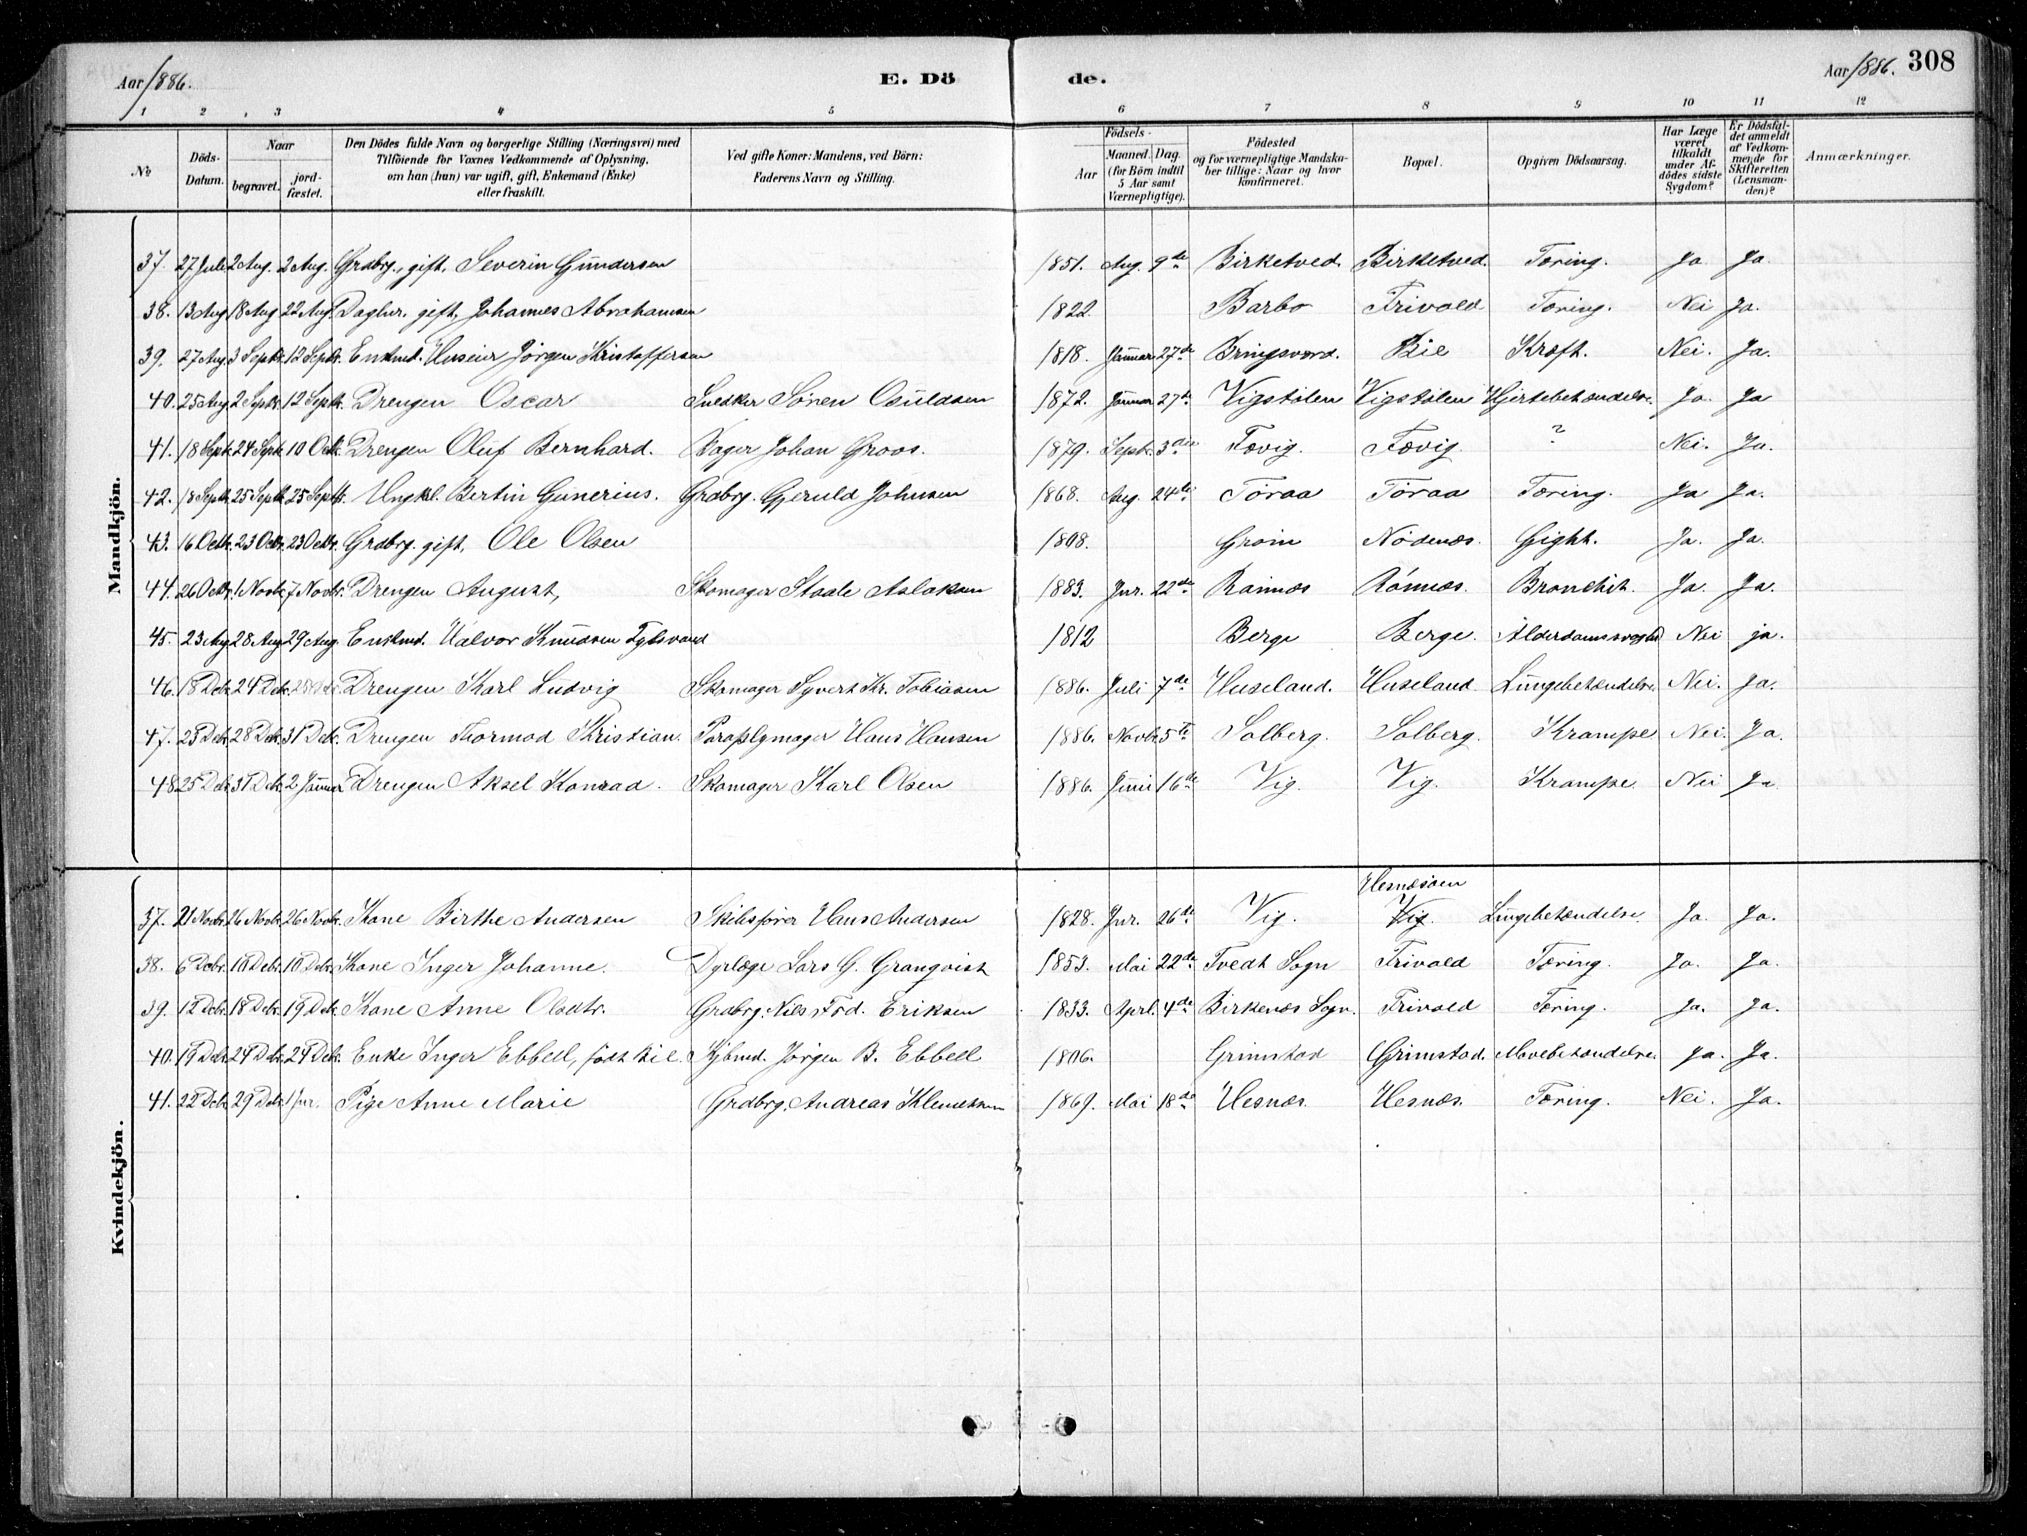 Aar 1886. E. Dö de. Aar 1886. 308
1 2 3 4 5 6 7 8 9 10 11 12
No Döds-Datum. Naar begravet. jordfæstet. Den Dödes fulde Navn og borgerlige Stilling (Næringsvei) med Tilföiende for Voxnes Vedkommende af Oplysning, om han (hun) var ugift, gift, Enkemand (Enke) eller fraskilt. Ved gifte Koner: Mandens, ved Börn: Faderens Navn og Stilling. Födsels- Aar Maaned. Dag. (for Börn indtil 5 Aar samt Værnepligtige). Födested og for værnepligtige Mandskaber tillige: Naar og hvor konfirmeret. Bopæl. Opgiven Dödsaarsag. Har Læge været tilkaldt under Afdödes sidste Sygdom? Er Dödsfaldet anmeldt af Vedkommende for Skifteretten (Lensmanden)? Anmærkninger.
Mandkjön.
37. 27 Juli 2 Aug. 2 Aug. Grdbrg., gift, Severin Gundersen 1851. Aug. 9de Birketved. Birketved. Tæring. Ja. Ja.
38. 13 Aug 18 Aug 22 Aug. Daglnr. gift, Johannes Abrahamsen 1822. Barbo Frivold Tæring. Nei Ja.
39. 27 Aug. 3 Septr. 12 Septr. Enkmd. Huseier Jörgen Kristoffersen 1818. Januar 27de Bringsværd. Bie Kræft. Nei. Ja.
40. 25 Aug. 2 Septr. 12 Septr. Drengen Oscar Snedker Sören Osuldsen 1872. Januar 27de Vigstölen Vigstölen Hjertebetændelse. Ja. Ja
41. 18 Septr. 24 Septr. 10 Octr. Drengen Oluf Bernhard. Bager Johan Groos. 1879. Septr. 3die Fævig. Fævig. ? Nei. Ja.
42. 18 Septr. 25 Septr. 25 Septr. Ungkl. Bertin Gunerius. Grdbrg. Gjeruld Johnsen 1868. Aug. 24de Töraa Töraa Tæring. Ja Ja.
43. 16 Octr. 23 Octr. 23 Octr. Grdbrg. gift, Ole Olsen 1808. Groin Nödenæs. Gight. Ja. Ja.
44. 26 Octr. 1 Novbr. 7 Novbr. Drengen August, Skomager Staale Aslaksen 1883. Jnr. 22de Rannæs Rönnæs. Bronchit. Ja. Ja.
45. 23 Aug 28 Aug 29 Aug. Enkmd. Halvor Knudsen 1812 Berge Berge. Nei ja.
46. 18 Dcbr. 24 Dcbr. Drengen Karl Ludvig Skomager Syvert Kr. Tobiasen 1886. Juli 7de Huseland. Huseland. Lungebetændelse. Nei. Ja.
47. 23 Dcbr. 28 Dcbr. 31 Dcbr. Drengen Thormod Kristian. Paraplymager Hans Hansen 1886. Novbr. 5te Solberg. Solberg. Krampe Nei. Ja.
48 25 Dcbr. 31 Dcbr. 2 Januar Drengen Aksel Konrad. Skomager Karl Olsen 1886. Juni 16de Vig. Vig. Krampe. Nei Ja.
Kvindekjön.
Hesnæsøen
37. 21 Novbr. 26 Novbr. 26 Novbr. Kone Birthe Andersen Skibsfører Hans Andersen 1828. Jnr. 26de Vig. Vig. Lungebetændelse Ja. Ja.
38. 6 Dcbr. 10 Dcbr. 10 Dcbr. Kone Inger Johanne. Dyrlæge Lars G. Granqvist 1853. Mai 22de Tvedt Sogn Frivold Tæring. Ja. Ja.
39. 12 Dcbr. 18 Dcbr. 19 Dcbr. Kone Anne Olsdtr. Grdbrg. Nils Föd. Eriksen 1833. Aprl. 4de Birkenæs Sogn. Frivold Tæring. Ja. Ja.
40. 19 Dcbr. 24 Dcbr. 24 Dcbr. Enke Inger Ebbell, född Bie. Kjbmd. Jörgen B. Ebbell 1806. Grimstad Grimstad. Mavebetændelse. Ja. Ja.
41. 22 Dcbr. 29 Dcbr. 1 Jnr. Pige Anne Marie Grdbrg. Andreas Klemetsen 1869. Mai 18de Hesnæs. Hesnæs. Tæring. Nei. Ja.